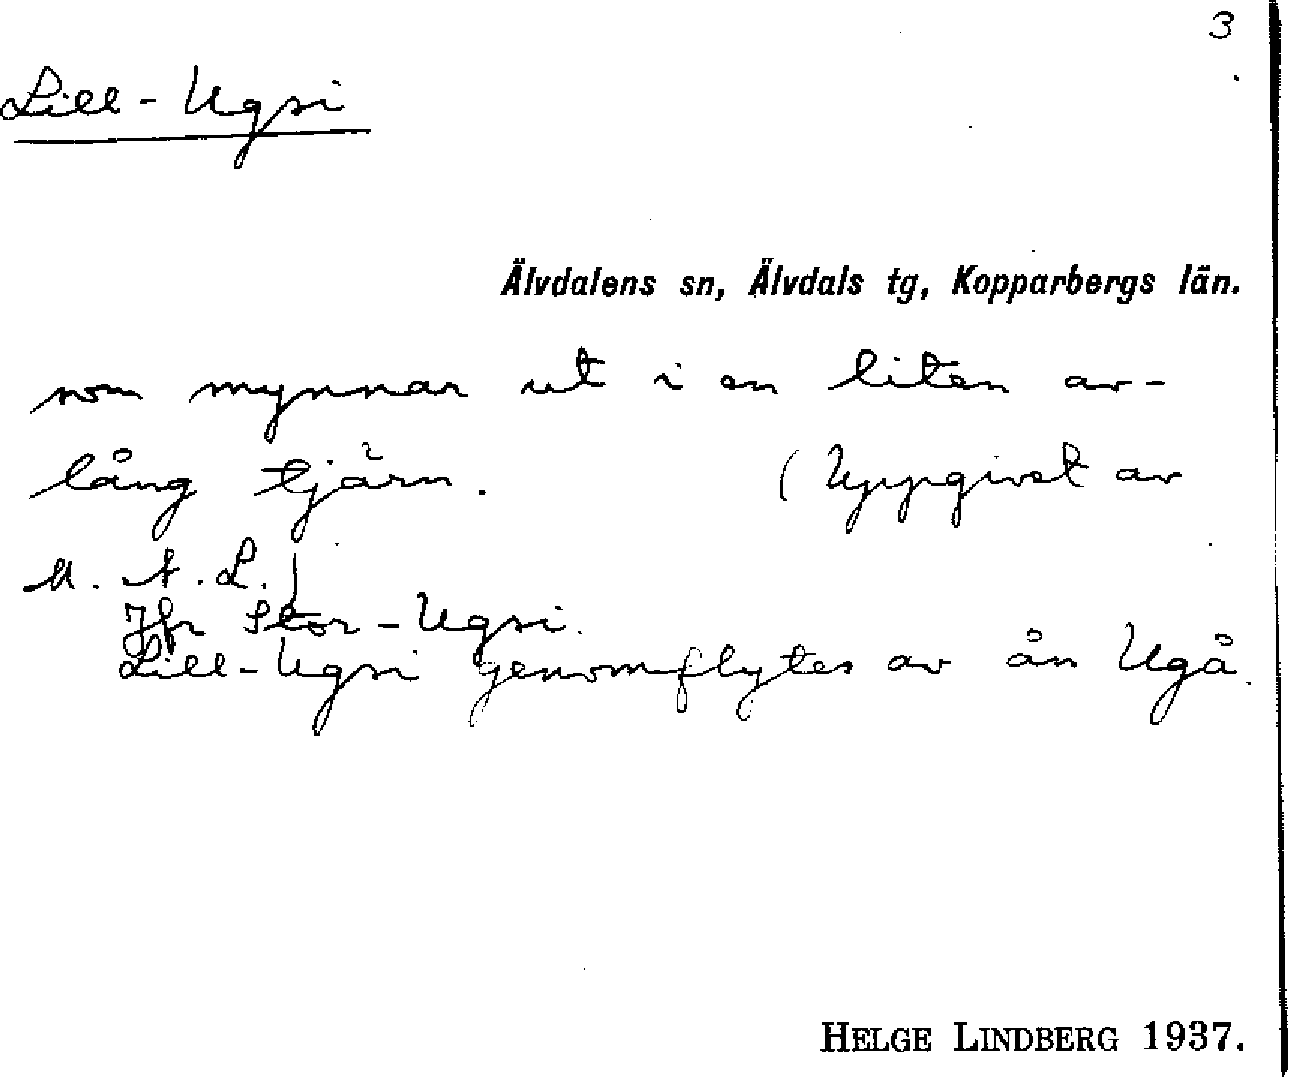 3
Lill-Ugsi
Älvdalens sn, Älvdals tg, Kopparbergs län.
som mynnar ut i en liten av-
lång tjärn. (Uppgivet av
M. A. L.)
Jfr Stor-Ugsi.
Lill-Ugsi genomflytes av ån Ugå.
HELGE LINDBERG 1937.